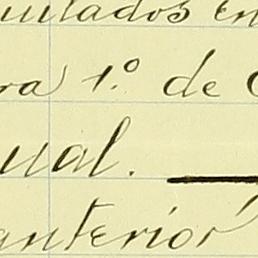 putados en
ra 1º de
ual.
anterior